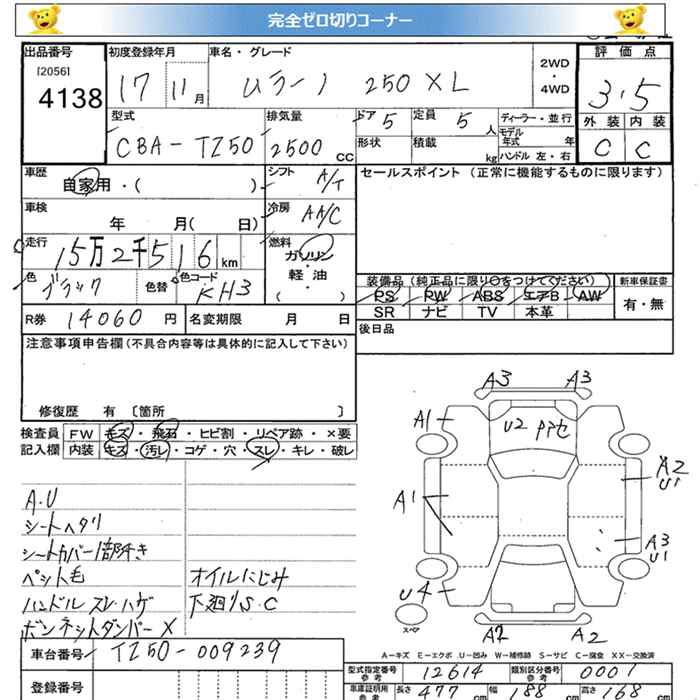 完全ゼロ切りコーナー
出品番号
[2056]
4138
初度登録年月
17 11月
車名・グレード
ムラーノ 250XL
2WD
・
4WD
評価点
3.5
外装 内装
C C
型式
CBA-TZ50
排気量
2500 CC
ドア 5
定員 5人
形状
積載 kg
ディーラー・並行
モデル年式 年
ハンドル 左・右
車歴
自家用・( )
シフト A/T
セールスポイント (正常に機能するものに限ります)
車検
年 月( 日)
冷房 AA/C
走行
15万2千516 km
燃料
ガソリン
軽・油
( )
色 ブラック
色替
色コード KH3
装備品 (純正品に限り○をつけてください)
PS PW ABS エアB AW
SR ナビ TV 本革
新車保証書
有・無
R券 14060 円
名変期限 月 日
後日品
注意事項申告欄(不具合内容等は具体的に記入して下さい)
修復歴 有 〔箇所 〕
検査員 FW キズ・飛石・ヒビ割・リペア跡・×要
記入欄 内装 キズ・汚レ・コゲ・穴・スレ・キレ・破レ
A.U
シートヘタリ
シートカバー1部ナキ
ペット毛
ハンドルスレハゲ
ボンネットダンパーX
オイルにじみ
下廻りS.C
A3 A3
A1
U2
A1
A2
U1
A3
U1
U4
スペア
A2 A2
A-キズ E-エクボ U-凹み W-補修跡 S-サビ C-腐食 XX-交換済
車台番号 TZ50-009239
登録番号
型式指定番号 参考 12614
類別区分番号 参考 0007
車庫証明用 参考 長さ 477 cm 幅 188 cm 高さ 168 cm